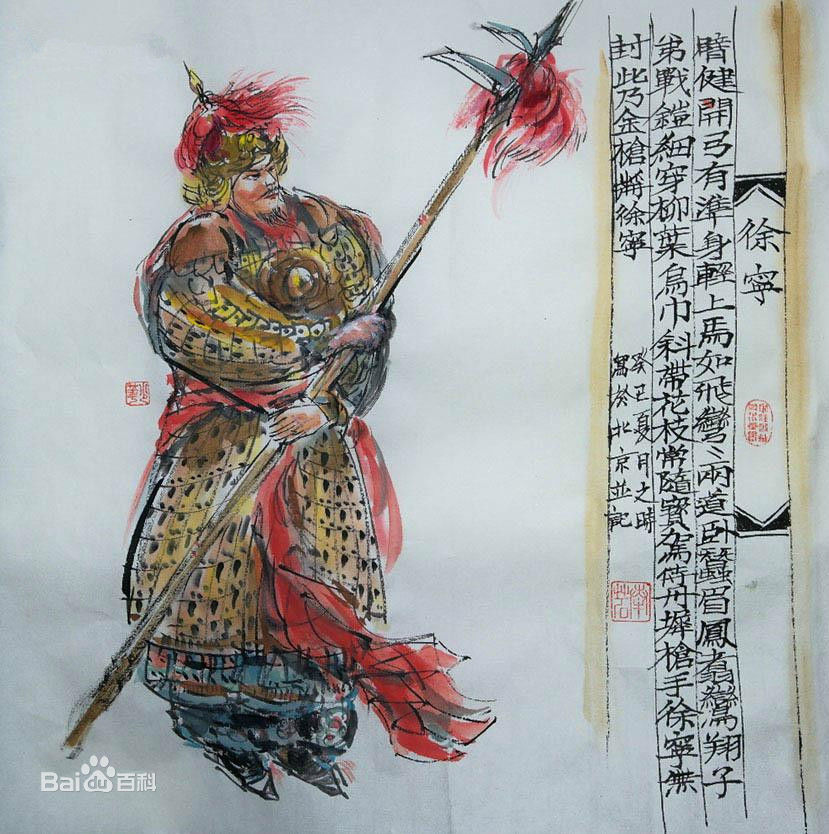 徐寧
健開弓有準身輕上馬如飛彎〻兩道卧蠶眉鳳翥鸞翔子
弟戰鎧細穿柳葉烏巾斜帶花枝常隨寶駕侍丹墀槍手徐寧無
封此乃金槍將徐寧
癸夏月之時
寫於北京並記
Baidu百科